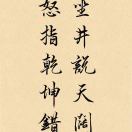 坐井說天闊
怒指乾坤錯